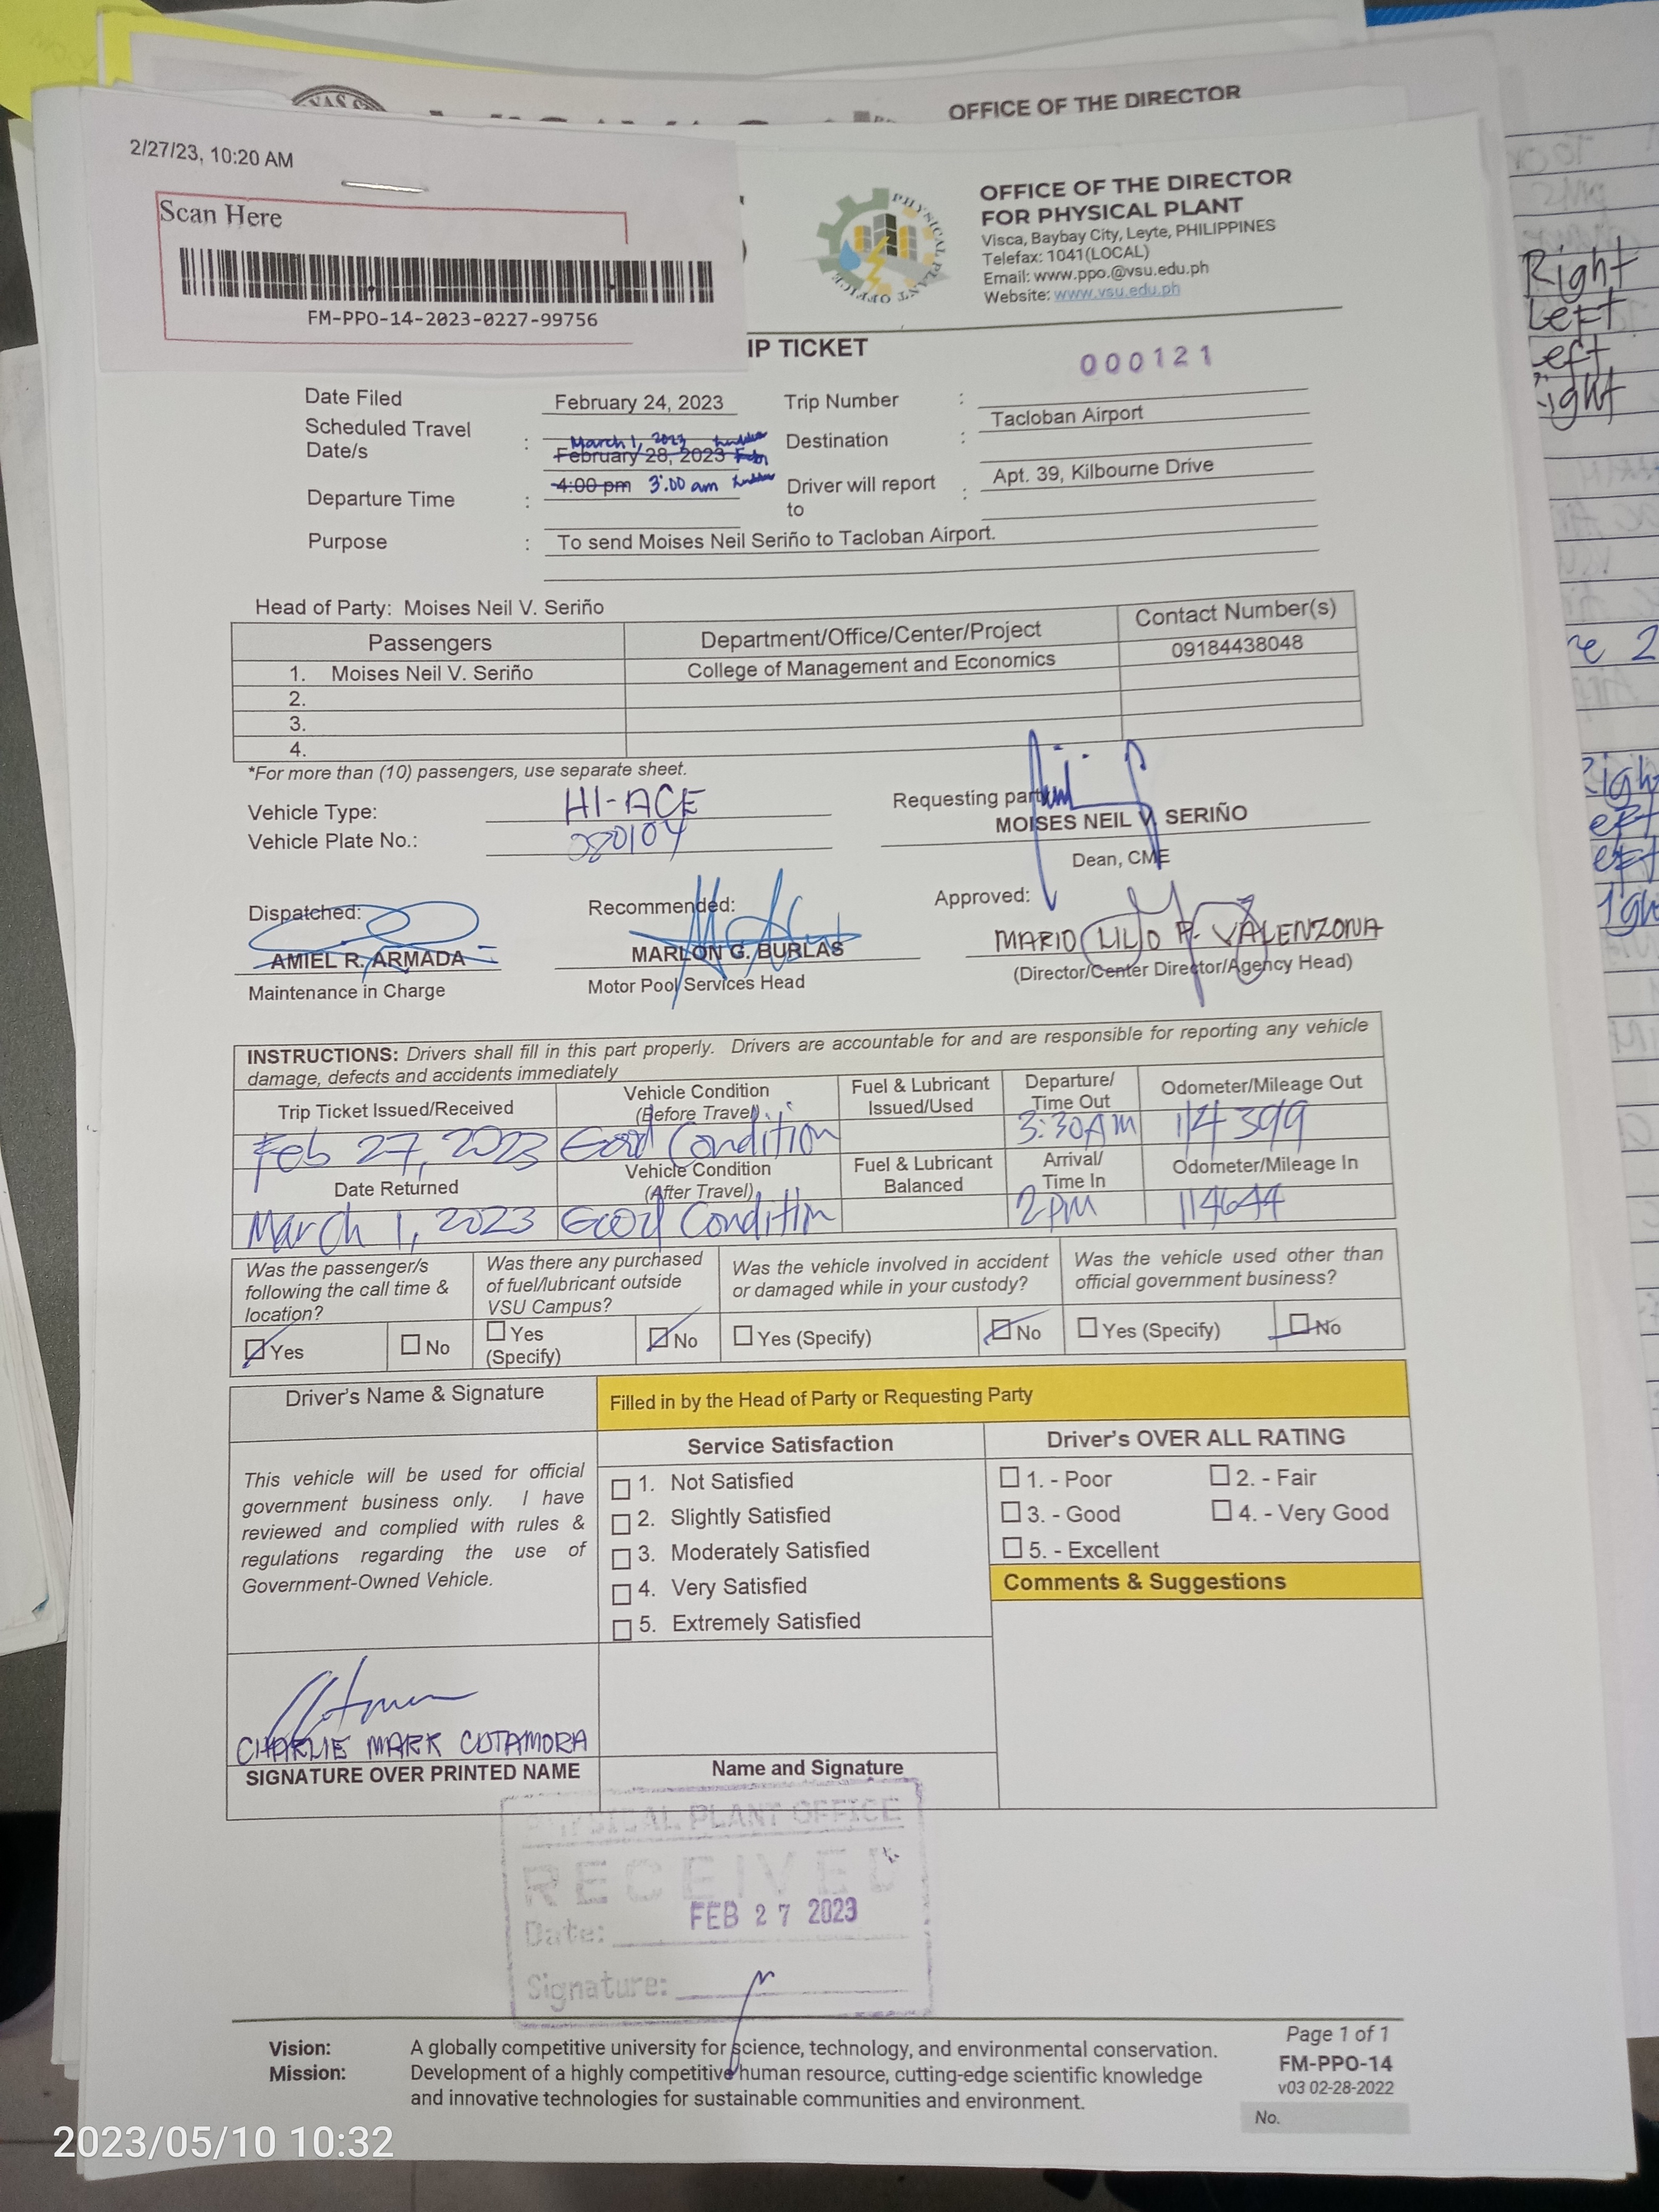 OFFICE OF THE DIRECTOR
2/27/23, 10:20 AM
Scan Here
FM-PPO-14-2023-0227-99756
PHYSICAL PLANT OFFICE
OFFICE OF THE DIRECTOR
FOR PHYSICAL PLANT
Visca, Baybay City, Leyte, PHILIPPINES
Telefax: 1041(LOCAL)
Email: www.ppo.@vsu.edu.ph
Website: www.vsu.edu.ph
IP TICKET
000121
Date Filed February 24, 2023 Trip Number :
Scheduled Travel Date/s : March 1, 2023 February 28, 2023 Destination : Tacloban Airport
Departure Time : 4:00 pm 3:00 am Driver will report to : Apt. 39, Kilbourne Drive
Purpose : To send Moises Neil Seriño to Tacloban Airport.
Head of Party: Moises Neil V. Seriño
Passengers Department/Office/Center/Project Contact Number(s)
1. Moises Neil V. Seriño College of Management and Economics 09184438048
2.
3.
4.
*For more than (10) passengers, use separate sheet.
Vehicle Type: HI-ACE
Vehicle Plate No.:
Requesting party
MOISES NEIL V. SERIÑO
Dean, CME
Dispatched: Recommended: Approved:
AMIEL R. ARMADA MARLON G. BURLAS MARIO LILIO P. VALENZONA
Maintenance in Charge Motor Pool Services Head (Director/Center Director/Agency Head)
INSTRUCTIONS: Drivers shall fill in this part properly. Drivers are accountable for and are responsible for reporting any vehicle
damage, defects and accidents immediately
Trip Ticket Issued/Received Vehicle Condition (Before Travel) Fuel & Lubricant Issued/Used Departure/ Time Out Odometer/Mileage Out
Feb 27, 2023 Good Condition 3:30AM 114399
Date Returned Vehicle Condition (After Travel) Fuel & Lubricant Balanced Arrival/ Time In Odometer/Mileage In
March 1, 2023 Good Condition 2pm 114644
Was the passenger/s following the call time & location? Was there any purchased of fuel/lubricant outside VSU Campus? Was the vehicle involved in accident or damaged while in your custody? Was the vehicle used other than official government business?
Yes No Yes (Specify) No Yes (Specify) No Yes (Specify) No
Driver's Name & Signature Filled in by the Head of Party or Requesting Party
Service Satisfaction Driver's OVER ALL RATING
This vehicle will be used for official
government business only. I have
reviewed and complied with rules &
regulations regarding the use of
Government-Owned Vehicle.
1. Not Satisfied
2. Slightly Satisfied
3. Moderately Satisfied
4. Very Satisfied
5. Extremely Satisfied
1. - Poor 2. - Fair
3. - Good 4. - Very Good
5. - Excellent
Comments & Suggestions
CHARLIE MARK COTAMORA
SIGNATURE OVER PRINTED NAME Name and Signature
PHYSICAL PLANT OFFICE
RECEIVED
Date: FEB 27 2023
Signature:
Vision: A globally competitive university for science, technology, and environmental conservation.
Mission: Development of a highly competitive human resource, cutting-edge scientific knowledge
and innovative technologies for sustainable communities and environment.
Page 1 of 1
FM-PPO-14
v03 02-28-2022
No.
Right
Left
Left
2023/05/10 10:32